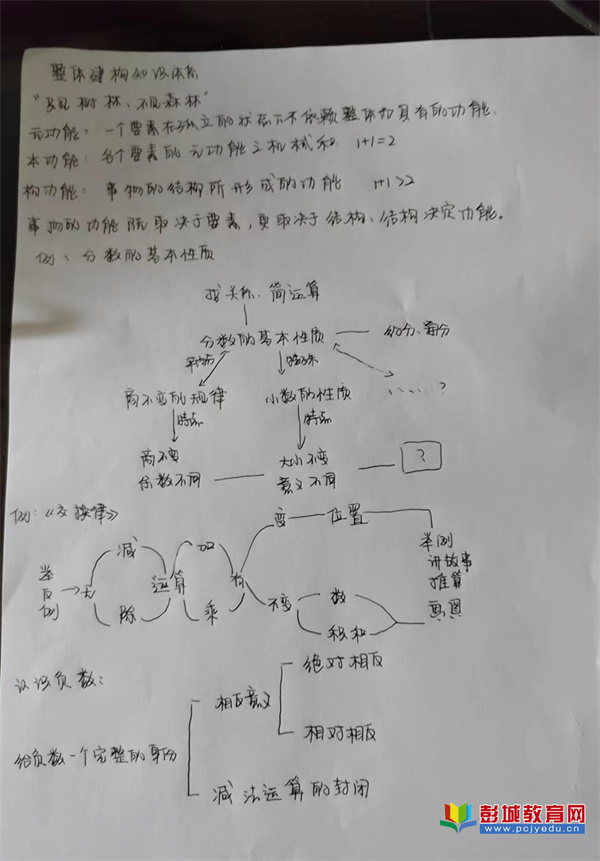 整体建构知识体系
"只见树林、不见森林"
元功能：一个要素在孤立的状态下不依赖整体而具有的功能.
本功能：各个要素的元功能之机械和. 1+1=2
构功能：事物的结构所形成的功能 1+1>2
事物的功能既取决于要素，更取决于结构、结构决定功能。
例、分数的基本性质
找关系、简运算
分数的基本性质 约分、通分
特殊
商不变的规律 小数的性质 ……?
特点 特点
商不变 大小不变 ?
余数不同 意义不同
例：《交换律》
变 位置
减 加 举例
举反例 无 运算 有 讲故事
除 乘 推算
不变 数 画图
积和
认识负数：
绝对相反
相反意义
相对相反
给负数一个完整的身份
减法运算的封闭
彭城教育网
www.pcjyedu.cn